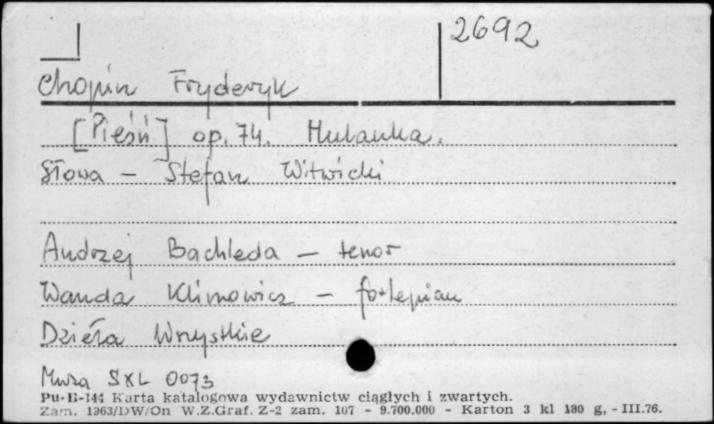 2692
Chopin Fryderyk
[Pieśń] op. 74. Hulanka.
Słowa – Stefan Witwicki
Andrzej Bachleda – tenor
Wanda Klimowicz – fortepian
Dzieła Wszystkie
Muza SXL 0073
Pu-B-144 Karta katalogowa wydawnictw ciągłych i zwartych.
Zam. 1263/DW/On W.Z.Graf. Z-2 zam. 107 - 9.700.000 - Karton 3 kl 180 g, - III.76.